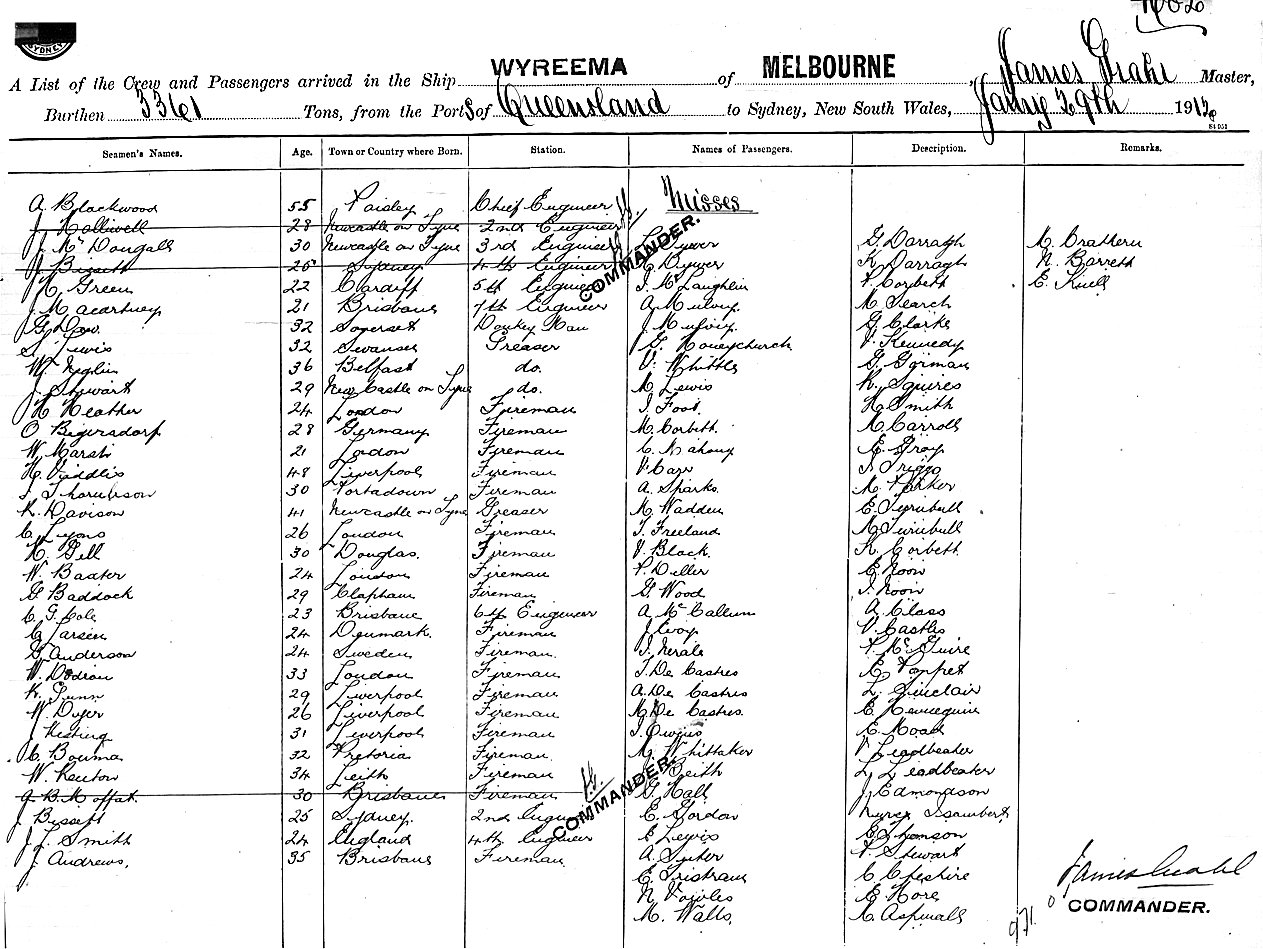 SYDNEY
A List of the Crew and Passengers arrived in the Ship WYREEMA of MELBOURNE, James Grahl Master,
Burthen 3361 Tons, from the Ports of Queensland to Sydney, New South Wales, Jany 29th 1912
Seamen's Names. Age. Town or Country where Born. Station. Names of Passengers. Description. Remarks.
A. Blackwood 55 Paisley Chief Engineer Misses
J. Halliwell 28 Newcastle on Tyne 2nd Engineer
J. McDougall 30 Newcastle on Tyne 3rd Engineer Dywer G. Darragh M. Brathern
J. Bissett 25 Sydney 4th Engineer Dywer K. Darragh N. Barrett
H. Green 22 Cardiff 5th Engineer McLaughlin Corbett E. Knell
J. Macartney 21 Brisbane 7th Engineer A. Mulvey M. Search
G. Dow 32 Somerset Donkey Man J. Mulvey G. Clarke
Lewis 32 Swansea Greaser G. Honeychurch V. Kennedy
W. 36 Belfast do. V. Whittle G. Gorman
J. Stewart 29 New Castle on Tyne do. M. Lewis K. Squires
H. Heather 24 London Fireman I. Foot H. Smith
O. Beyersdorf 28 Germany Fireman M. Corbett M. Carroll
W. Marsh 21 London Fireman C. Mahony E. Gray
H. Viddlis 48 Liverpool Fireman V. Carr Triggs
Thornbson 30 Portadown Fireman A. Sparks M. Parker
R. Davison 41 Newcastle on Tyne Greaser M. Wadden E. Turnbull
C. Lyons 26 London Fireman T. Freeland M. Turnbull
H. Gell 30 Douglas. Fireman V. Black K. Corbett
W. Baxter 24 London Fireman P. Deller E. Noon
G. Baddock 29 Clapham Fireman G. Wood I. Noon
C. G. Cole 23 Brisbane 6th Engineer A. McCallum A. Class
C. Larsen 24 Denmark. Fireman J. Evoy V. Castles
G. Anderson 24 Sweden Fireman. Nerals P. McGuire
W. Dodrian 33 London Fireman I. De Castres E. Poppet
K. Gunn 29 Liverpool Fireman A. De Castres L. Sinclair
W. Dyer 26 Liverpool Fireman M. De Castres E. Hennequin
J. Kesting 31 Liverpool Fireman E. Moad
C. Bouma 32 Pretoria Fireman M. Whittaker V. Leadbeater
W. Renton 34 Leith Fireman Beith L. Leadbeater
A. B. Moffat. 30 Brisbane Fireman G. Hall J. Edmondson
J. Bissett 25 Sydney. 2nd Engineer E. Gordon Isambert
J. L. Smith 24 England 4th Engineer E. Lewis
J. Andrews, 35 Brisbane Fireman. A. Suter P. Stewart
E. Tristram C. Cheshire
N. Vowles E. Hore
M. Watts. C. Aspinall
COMMANDER.
COMMANDER.
James Grahl
COMMANDER.
971